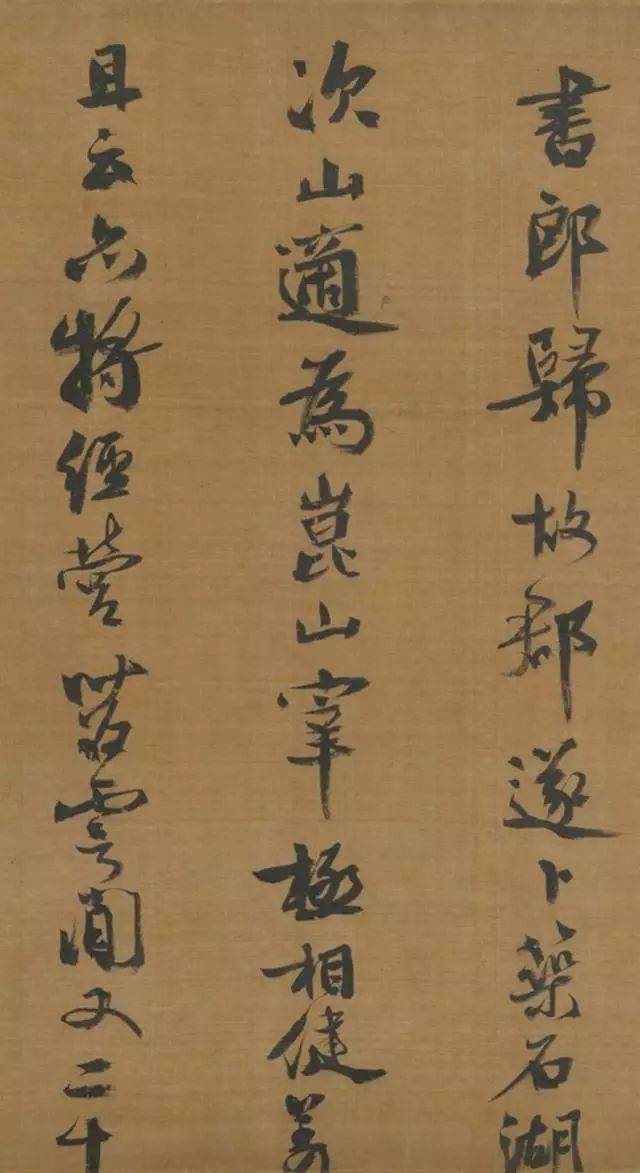 書郎歸故郡遂卜築石湖
次山適為崑山宰極相健羨
且云亦將經營苕霅間又二十